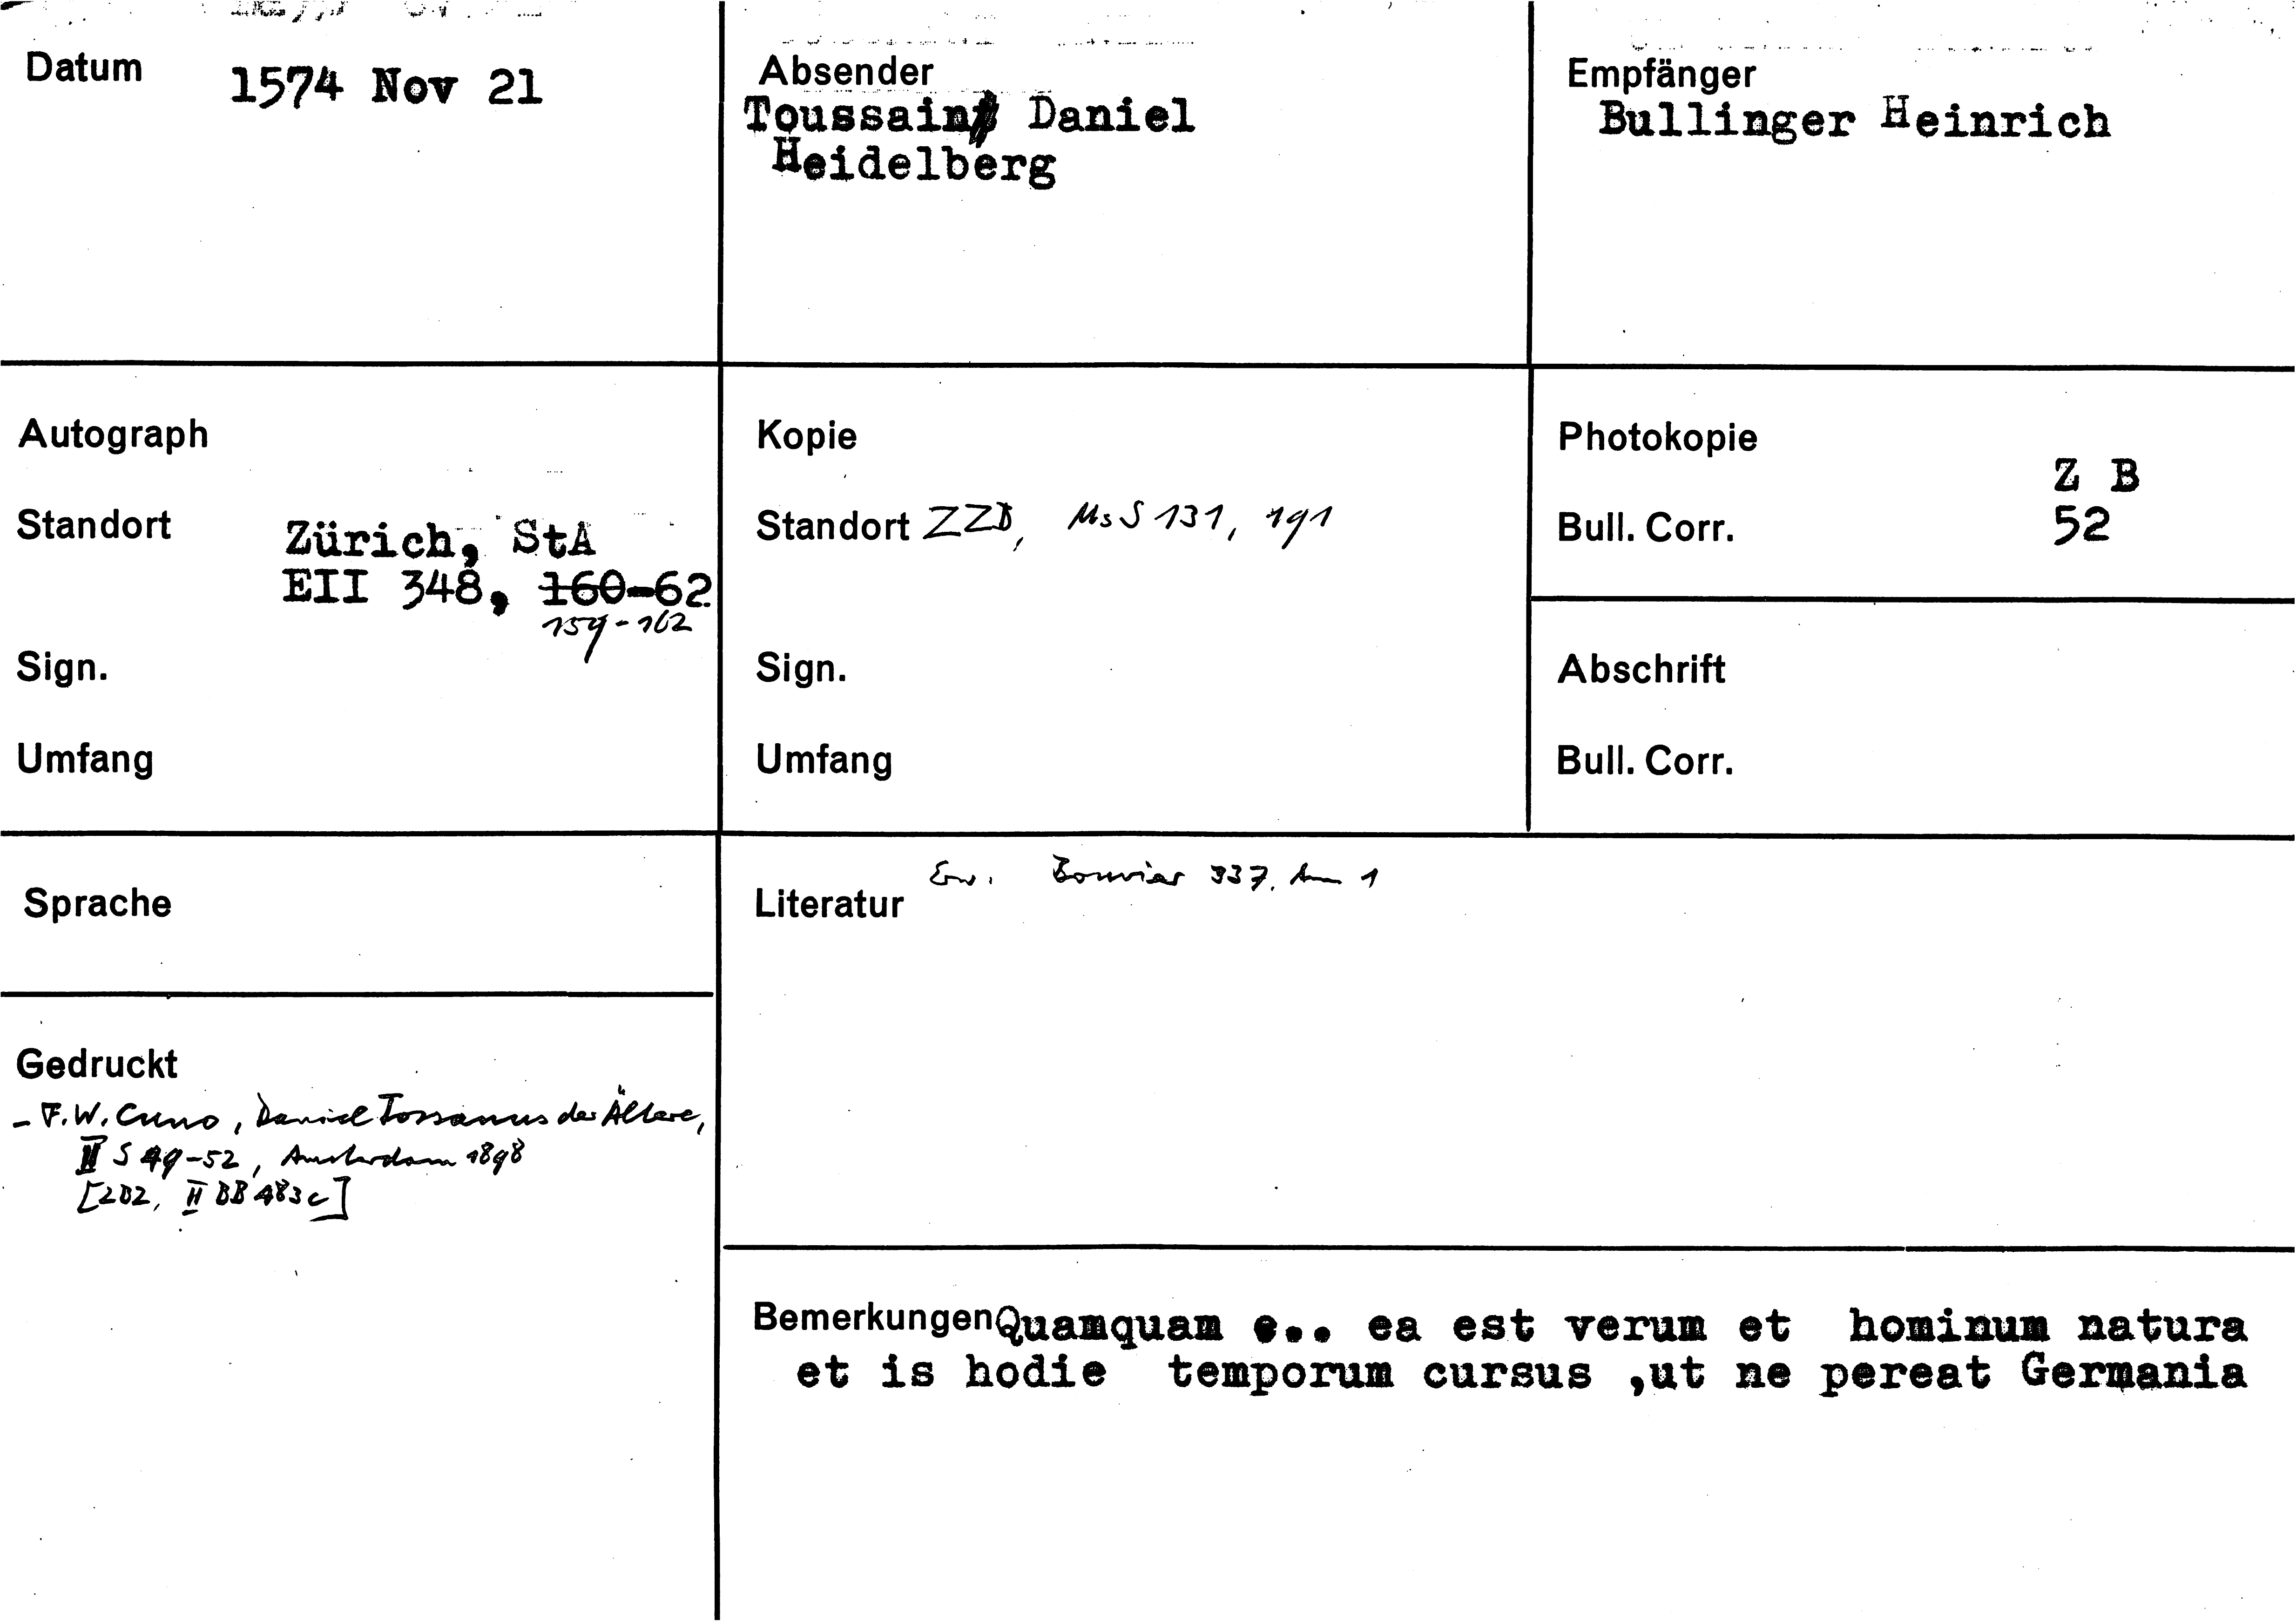 Datum 1574 Nov 21
Absender
Toussaint Daniel
Heidelberg
Empfänger
Bullinger Heinrich
Autograph
Standort Zürich, StA
EII 348, 160-62
159-162
Sign.
Umfang
Kopie
Standort ZZB, Ms S 131, 191
Sign.
Umfang
Photokopie
Z B
Bull. Corr. 52
Abschrift
Bull. Corr.
Sprache
Literatur Erw. Bouvier 337, Anm 1
Gedruckt
- F.W. Cuno, Daniel Tossanus der Ältere,
II S 49-52, Amsterdam 1898
[ZBZ, II BB 483c]
Bemerkungen Quamquam e.. ea est verum et hominum natura
et is hodie temporum cursus ,ut ne pereat Germania